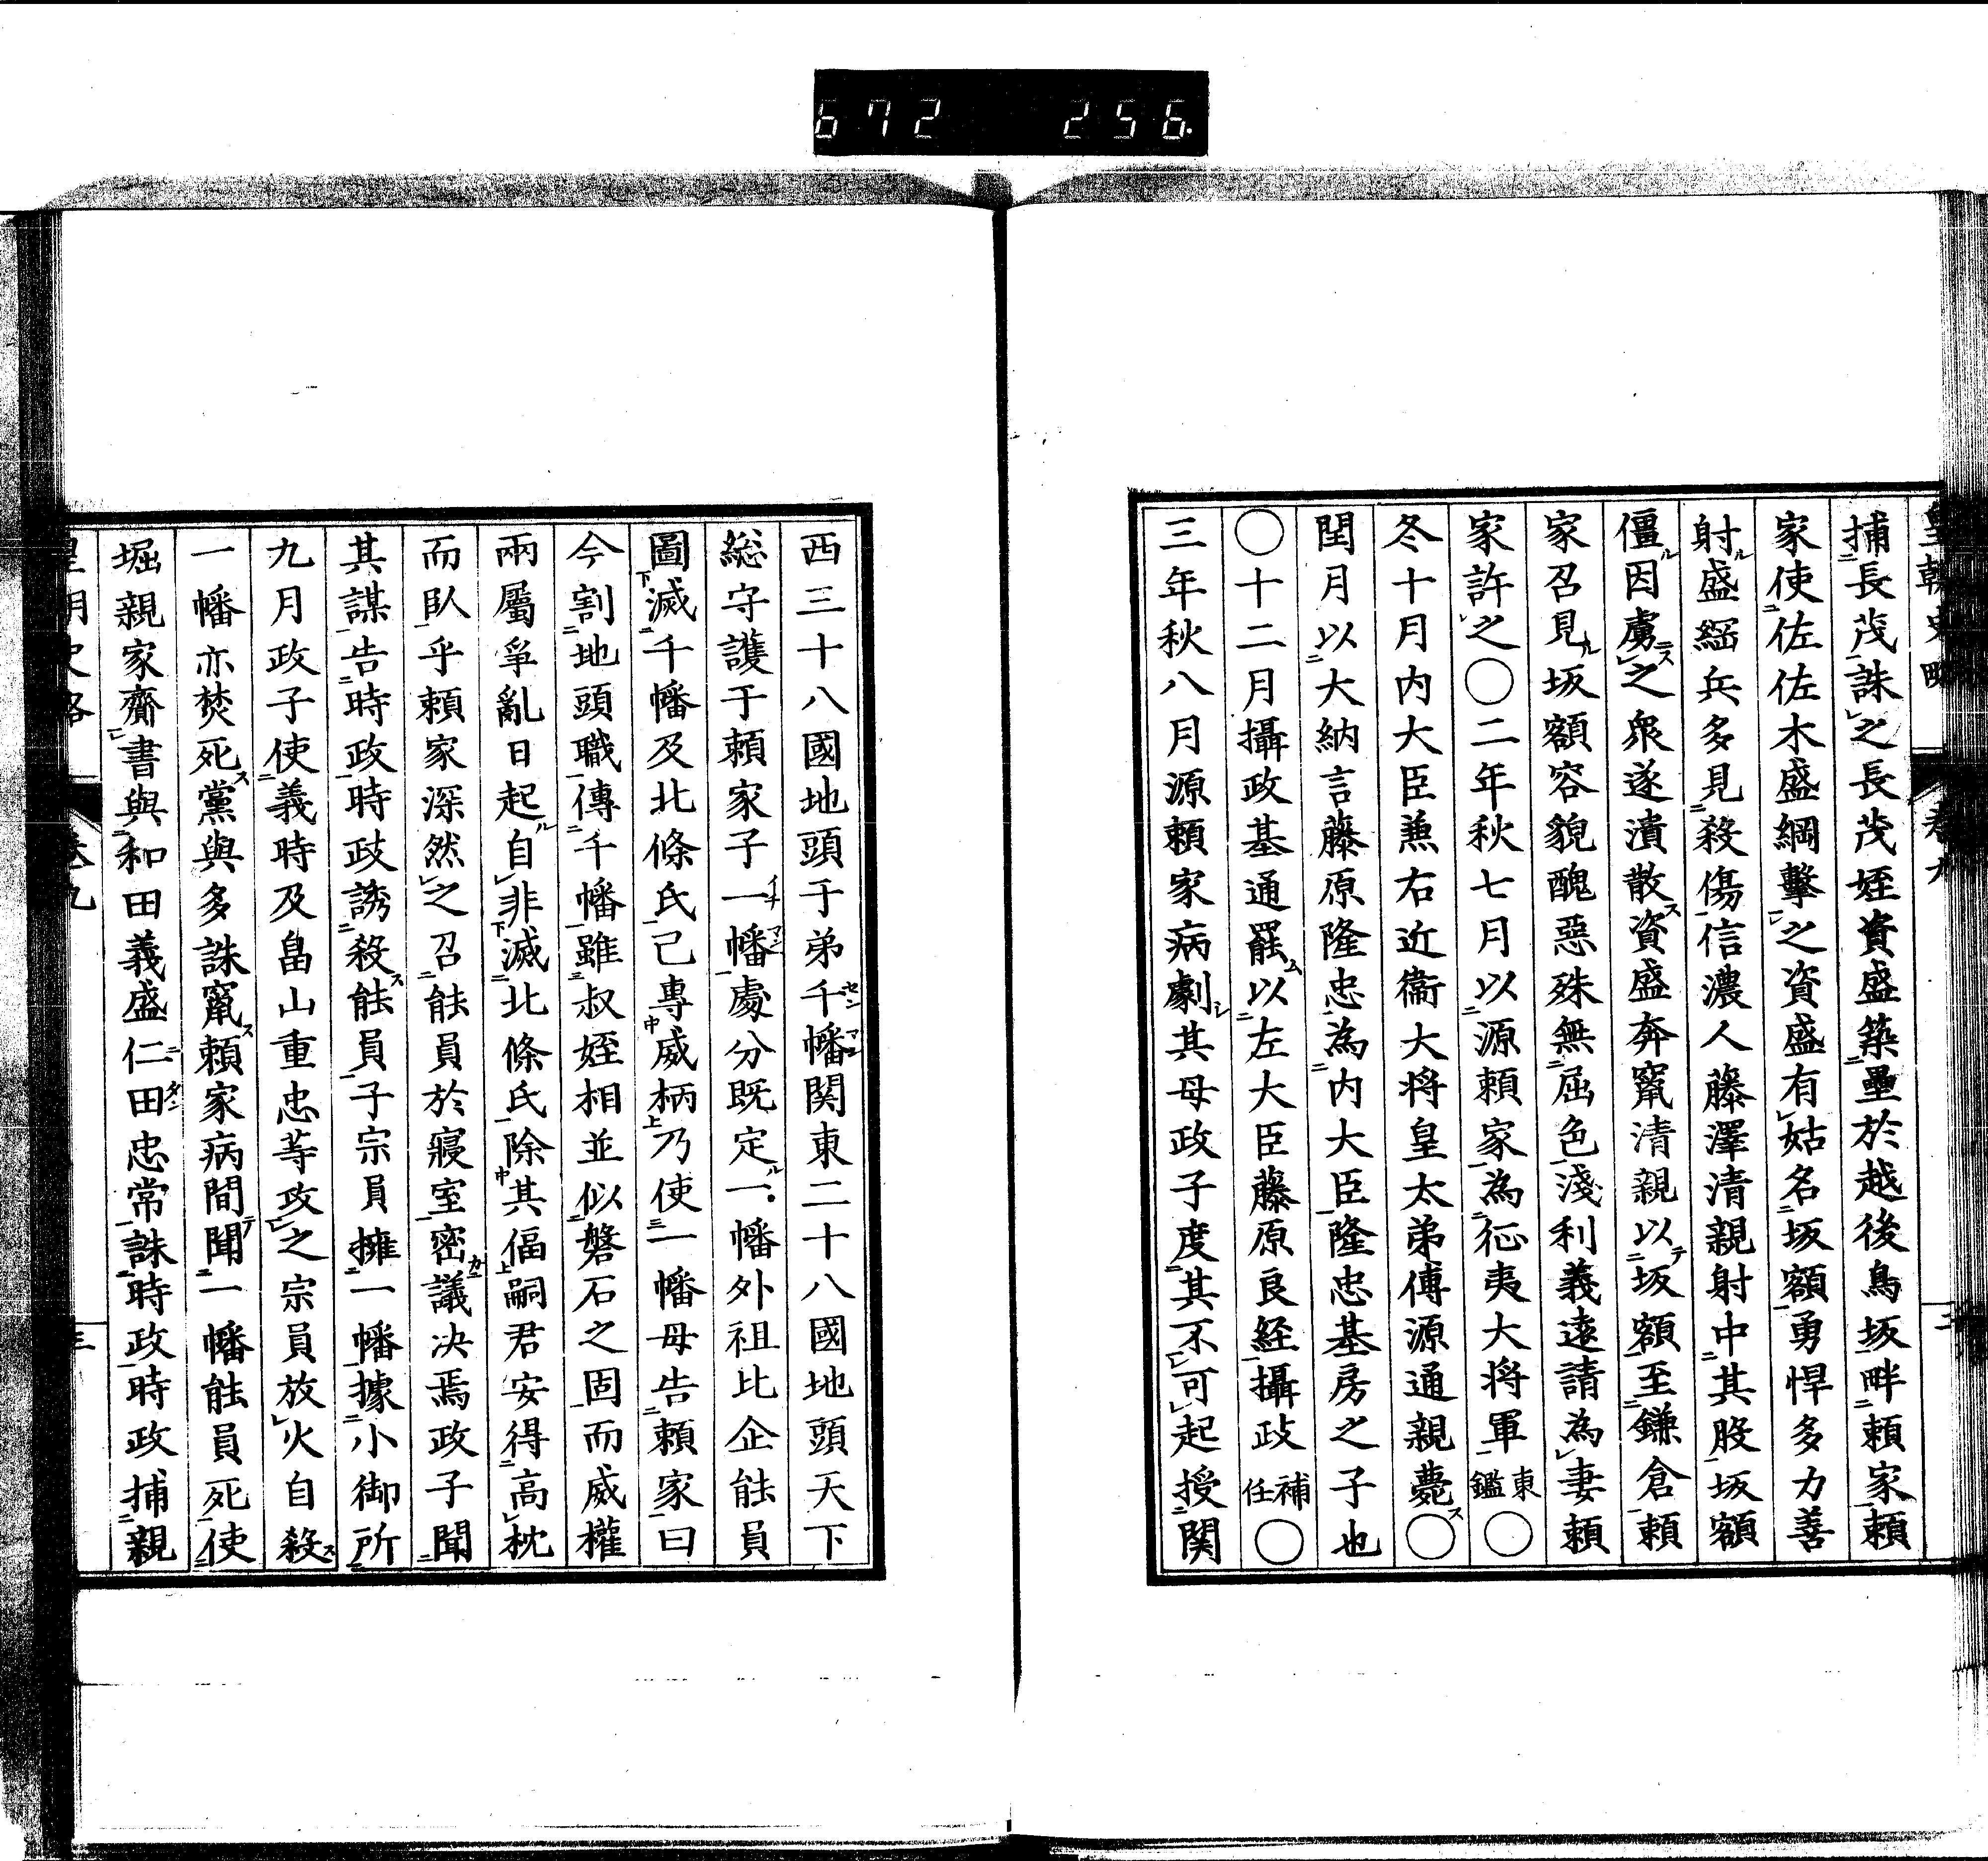 672 256
皇朝史略 卷九 三
捕長茂誅之長茂姪資盛築壘於越後鳥坂畔頼家頼
家使佐佐木盛綱擊之資盛有姑名坂額勇悍多力善
射盛經兵多見殺傷信濃人藤澤清親射中其股坂額
僵因虜之衆遂潰散資盛奔竄清親以坂額至鎌倉頼
家召見坂額容貌醜惡殊無屈色淺利義遠請為妻頼
家許之〇二年秋七月以源頼家為征夷大将軍東鑑〇
冬十月内大臣兼右近衞大将皇太弟傅源通親薨〇
閏月以大納言藤原隆忠為内大臣隆忠基房之子也
〇十二月攝政基通罷以左大臣藤原良経攝政補任〇
三年秋八月源頼家病劇其母政子度其不可起授関
西三十八國地頭于弟千幡関東二十八國地頭天下
総守護于頼家子一幡處分既定一幡外祖比企能員
圖滅千幡及北條氏己專威柄乃使一幡母告頼家曰
今割地頭職傳千幡雖叔姪相並似磐石之固而威權
兩屬爭亂日起自非滅北條氏除其偪嗣君安得高枕
而臥乎頼家深然之召能員於寢室密議決焉政子聞
其謀告時政時政誘殺能員子宗員擁一幡據小御所
九月政子使義時及畠山重忠等攻之宗員放火自殺
一幡亦焚死黨與多誅竄頼家病間聞一幡能員死使
堀親家齎書與和田義盛仁田忠常誅時政時政捕親
皇朝史略 卷九 三